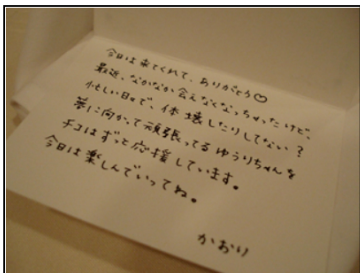 今日は来てくれて、ありがとう♡
最近、なかなか会えなくなっちゃったけど、
忙しい日々で、体壊したりしてない?
夢に向かって頑張ってるゆうりちゃんを
チコはずっと応援しています。
今日は楽しんでいってね。
かおり